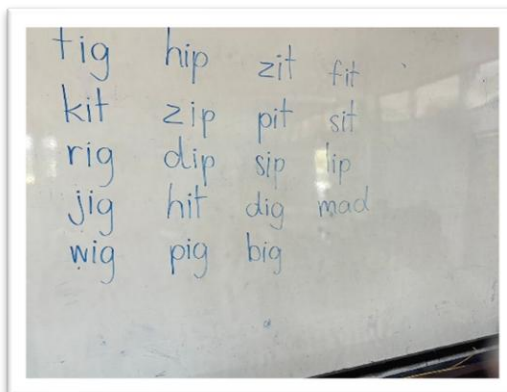 tig hip zit fit
kit zip pit sit
rig dip sip lip
jig hit dig mad
wig pig big